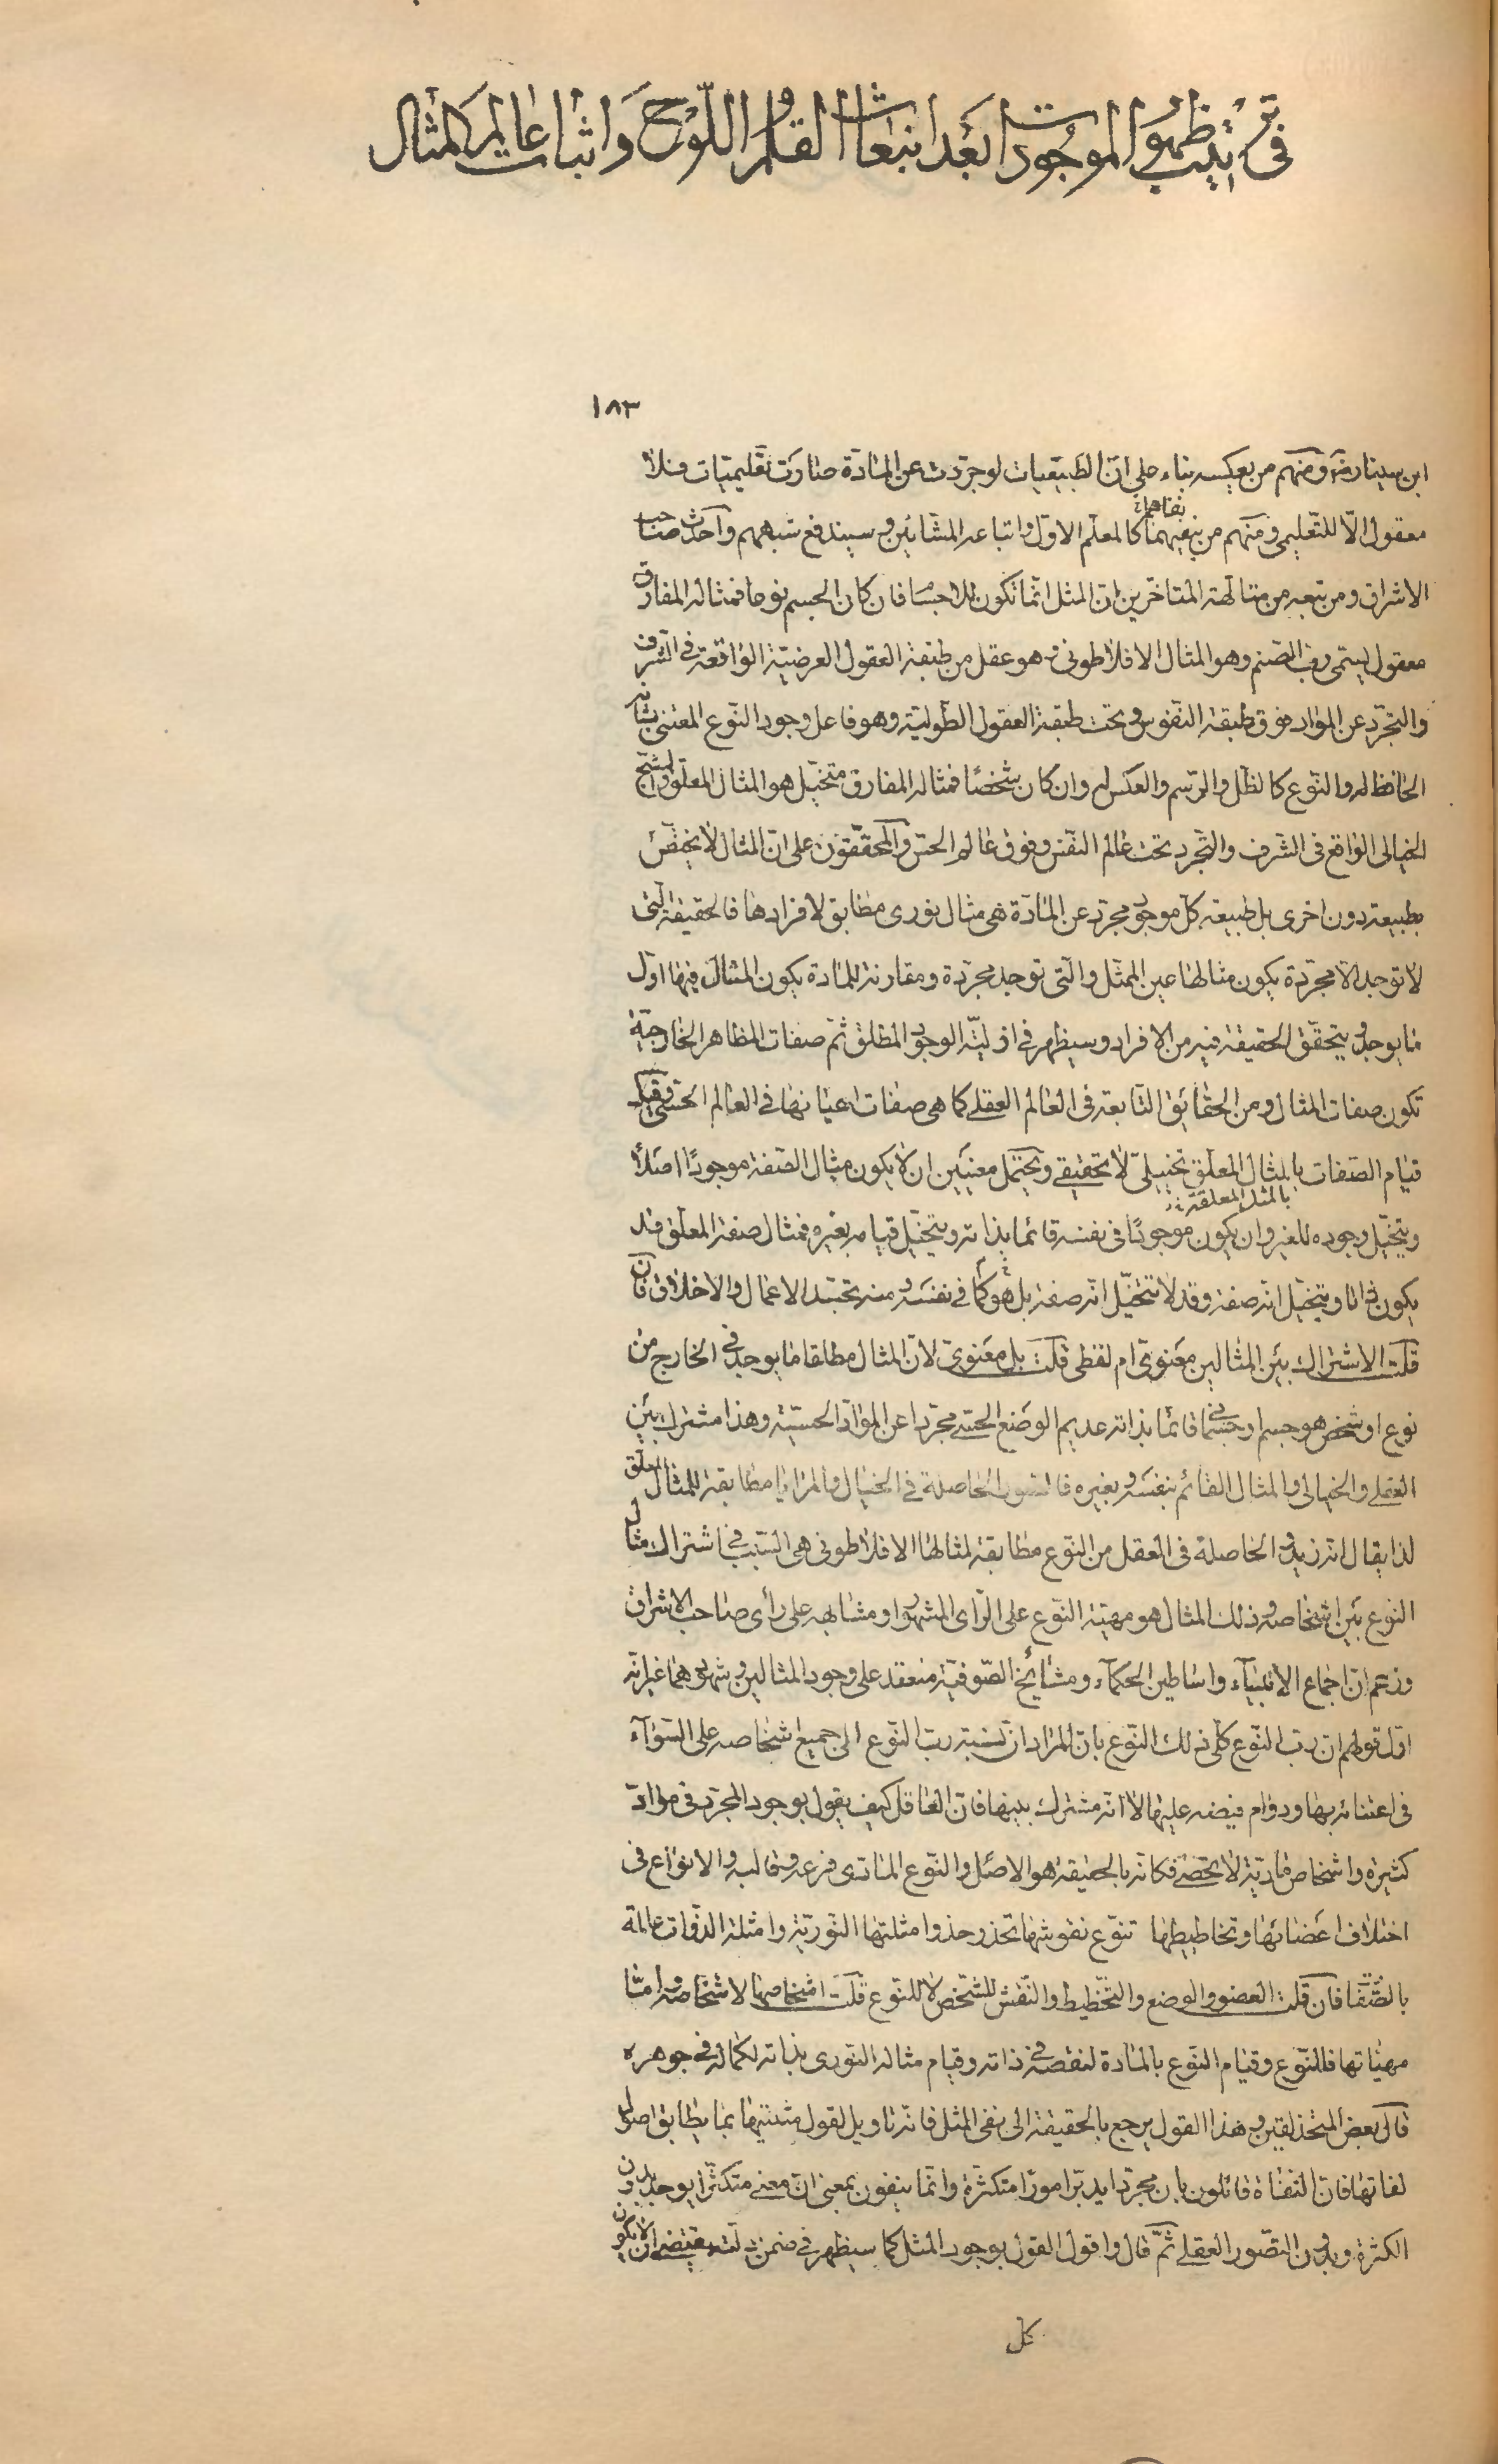 فى ترتيب ظهور الموجودات بعد انبعاث القلم و اللّوح وَ اثبات عالم المثال
١٨٣
ابن سينا ره و منهم من يعكسه بناء على انّ الطبيعيات لو جرّدت عن المادّة صارَت تعليميّات فلا
معقول الّا للتّعليمى و منهم من ينفيهما كالمعلّم الاوّل و اتباعه المشّائين و سيندفع شبههم و آحدث صاحب
نفاهما
الاشراق و من تبعه من متالّهة المتاخّرين انّ المثل انّما تكون للاجسا فان كان الجسم نوعا فمثاله المفارق
معقول يسمّى ربّ الصّنم و هو المثال الافلاطونى و هو عقل من طبقة العقول العرضيّة الواقعة فى الشّرف
و التّجرّد عن الموادّ فوق طبقة النّفوس و تحت طبقة العقول الطّوليّة و هو فاعل وجود النّوع المعتنى بشانه
الحافظ له و النّوع كالظّل و الرّسم و العكس له و ان كان شخصًا فمثاله المفارق متخيّل هو المثال المعلّق و الشّبح
الخيالى الواقع فى الشّرف و التّجرد تحت عالم النّفس و فوق عالم الحسّ و المحقّقون على انّ المثال لا يختصّ
بطبيعة دون اخرى بل طبيعة كلّ موجود مجرّد عن المادّة هى مثال نورى مطابق لافرادها فالحقيقة الّتى
لا توجد الّا مجرّدة يكون مثالها عين الممثّل و الّتى توجد مجرّدة و مقارنة للمادة يكون المثال فيها اوّل
ما يوجد و يتحقّق الحقيقة فيه من الافراد و سيظهر فى اوليّة الوجود المطلق ثمّ صفات المظاهر الخارجيّة
تكون صفات المثال و من الحقائق التّابعة فى العالم العقلے كما هى صفات اعيانها فے العالم الحسّى و قيل
قيام الصّفات بالمثال المعلّق تخييلىّ لا تحقيقے و يحتمل معنيَين ان لا يكون مثال الصّفة موجودًا اصلًا
بالمثل المعلقة
و يتخيّل وجوده للغير و ان يكون موجودًا فى نفسه قائما بذاته و يتخيّل قيامه بغيره فمثال صفة المعلّق قد
يكون ذاتا و يتخيّل انّه صفة و قد لا تتخيّل انّه صفة بل هو كما فے نفسه و منه تجسّد الاعمال و الاخلاق فان
قلت الاشتراك بين المثالين معنوىّ ام لفظى قلت بل معنوىّ لانّ المثال مطلقا ما يوجد فے الخارج من
نوع او شخص هو جسم او جسمانى قائما بذاته عديم الوضع الحسّے مجرّدا عن الموادّ الحسّيّة و هذا مشترك بين
العقلے و الخيالى و المثال القائم بنفسه و بغيره فالصّور الحاصلة فے الخيال و المرايا مطابقة للمثال المعلّق
لذا يقال انّه زيد و الحاصلة فى العقل من النّوع مطابقة لمثالها الافلاطونى هى السّبب فے اشتراك مثال
النّوع بين اشخاصه و ذلك المثال هو مهيّة النّوع على الرّاى المشهور او مشابهه على رأى صاحب الاشراق
و زعم انّ اجماع الانبيآء و اساطين الحكمآء و مشائخ الصّوفيّة منعقد على وجود المثالين و شهودهما غير انّه
اوّل قولهم انّ ربّ النّوع كلّى ذلك النّوع بانّ المراد ان نسبة ربّ النّوع الى جميع اشخاصه على السّوآء
فى اعتنائه بها و دوام فيضه عليها لا انّه مشترك بينها فانّ العاقل كيف يقول بوجود المجرّد فى موادّ
كثيرة و اشخاص مادّيّة لا تحصے فكانّه بالحقيقة هو الاصل و النّوع المادّى فرعه و قالبه و الانواع فى
اختلاف اعضائها و تخاطيطها تنوّع نقوشها تحذو حذو امثلتها النّوريّة و امثلة الذّوات عالمة
بالصّفا فان قلت العضو و الوضع و التّخطيط و النّقش للشّخص لا للنّوع قلت اشخاصها لاشخاصه و امّا
مهيّاتها فللنّوع و قيام النّوع بالمادّة لنقصه فے ذاته و قيام مثاله النّورى بذاته لكماله فے جوهره
قال بعض المتحذلقين و هذا القول يرجع بالحقيقة الى نفى المثل فانّه تاويل لقول مثبتيها بما يطابق اصول
نفاتها فانّ النّفاة قائلون بان مجرّدا يدبّر امورًا متكثّرة و انّما ينفون بمعنى انّ معنے متكثّرا يوجد بدون
الكثرة و بدون التّصّور العقلے ثمّ قال و اقول القول بوجود المثل كما سيظهر فے ضمن يقتضے ان لا يكون
كلّ